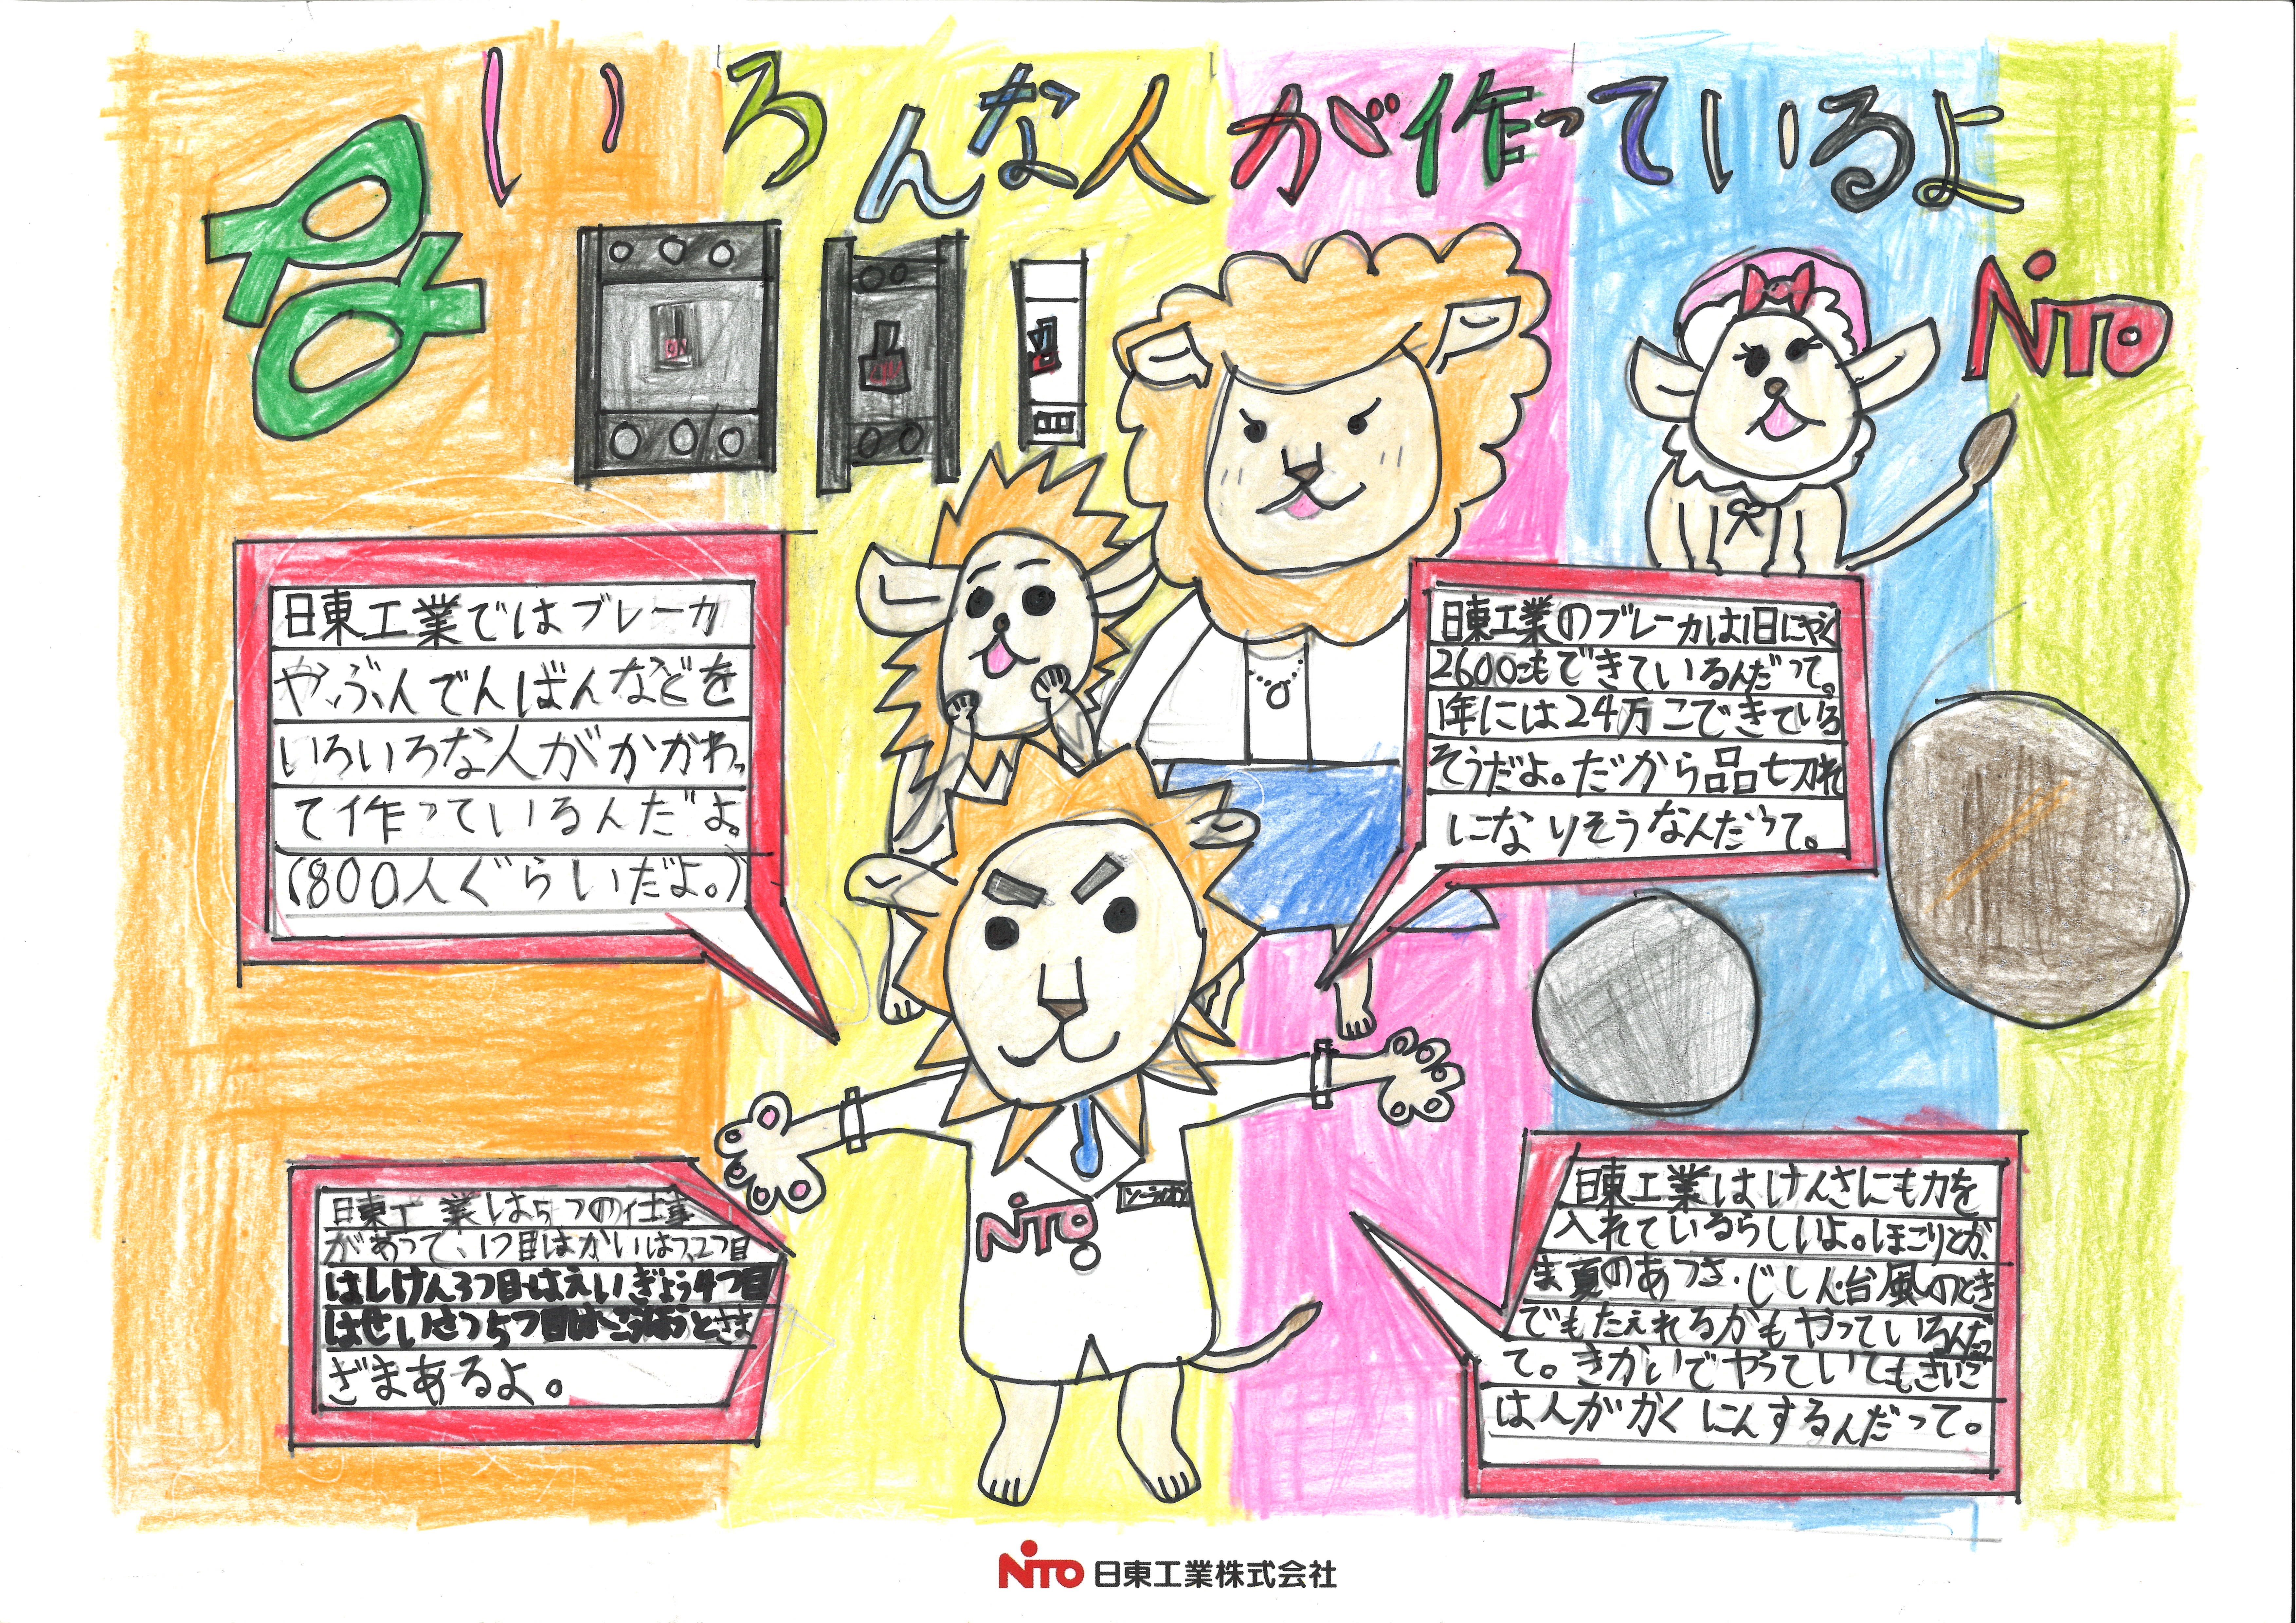 いろんな人が作っているよ
NiTO
ON
日東工業ではブレーカ
や、ぶんでんばんなどを
いろいろな人がかかわっ
て作っているんだよ。
(800人ぐらいだよ。)
日東工業のブレーカは1日にやく
2600こもできているんだって。
1年には24万こできている
そうだよ。だから品切れ
になりそうなんだって。
日東工業は5つの仕事
があって、1つ目はかいはつ、2つ目
はしけん3つ目はえいぎょう4つ目
はせいさつ5つ目はこうほうとさま
ざまあるよ。
NiTO
日東工業はけんさにも力を
入れているらしいよ。ほこりとか、
ま夏のあつさ・じしん・台風のとき
でもたえれるかもやっているんだっ
て。きかいでやっていてもさいご
は人がかくにんするんだって。
NiTO 日東工業株式会社